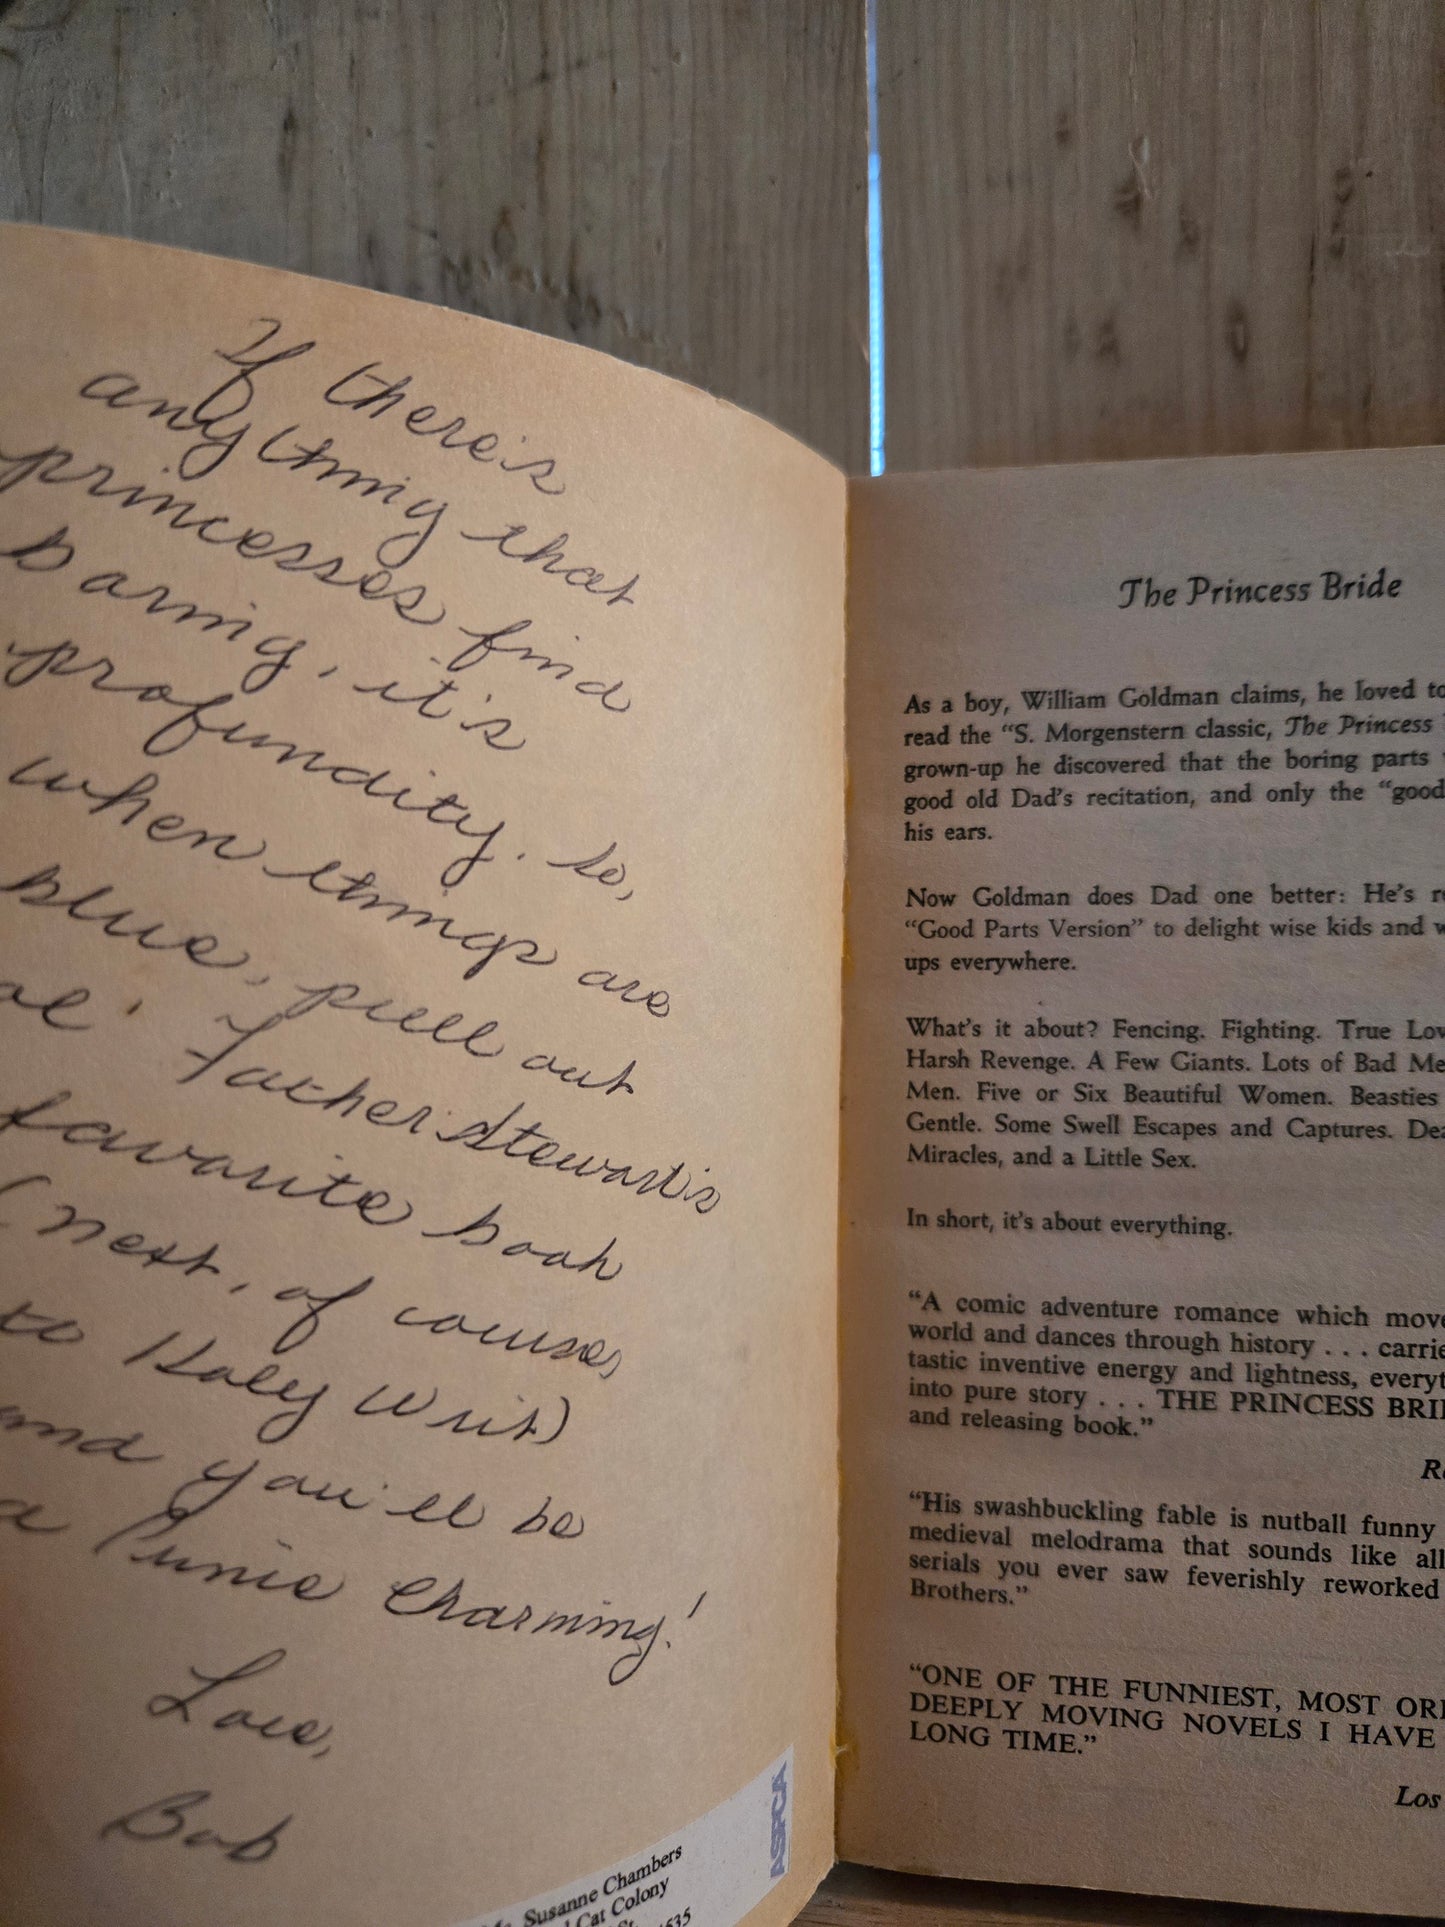 If there's
anything that
princesses find
boring, it's
profundity. So,
when things are
blue, pull out
ol' Father Stewart's
favorite book
(next, of course,
to Holy Writ)
and you'll be
a Prince Charming!
Love,
Bob
ASPCA
Susanne Chambers
Cat Colony
St.
The Princess Bride
As a boy, William Goldman claims, he loved to
read the "S. Morgenstern classic, The Princess
grown-up he discovered that the boring parts
good old Dad's recitation, and only the "good
his ears.
Now Goldman does Dad one better: He's
"Good Parts Version" to delight wise kids and
ups everywhere.
What's it about? Fencing. Fighting. True
Harsh Revenge. A Few Giants. Lots of Bad
Men. Five or Six Beautiful Women. Beasties
Gentle. Some Swell Escapes and Captures.
Miracles, and a Little Sex.
In short, it's about everything.
"A comic adventure romance which
world and dances through history . . .
tastic inventive energy and lightness,
into pure story . . . THE PRINCESS
and releasing book."
"His swashbuckling fable is nutball funny
medieval melodrama that sounds like all
serials you ever saw feverishly reworked
Brothers."
"ONE OF THE FUNNIEST, MOST
DEEPLY MOVING NOVELS I HAVE
LONG TIME."
Los